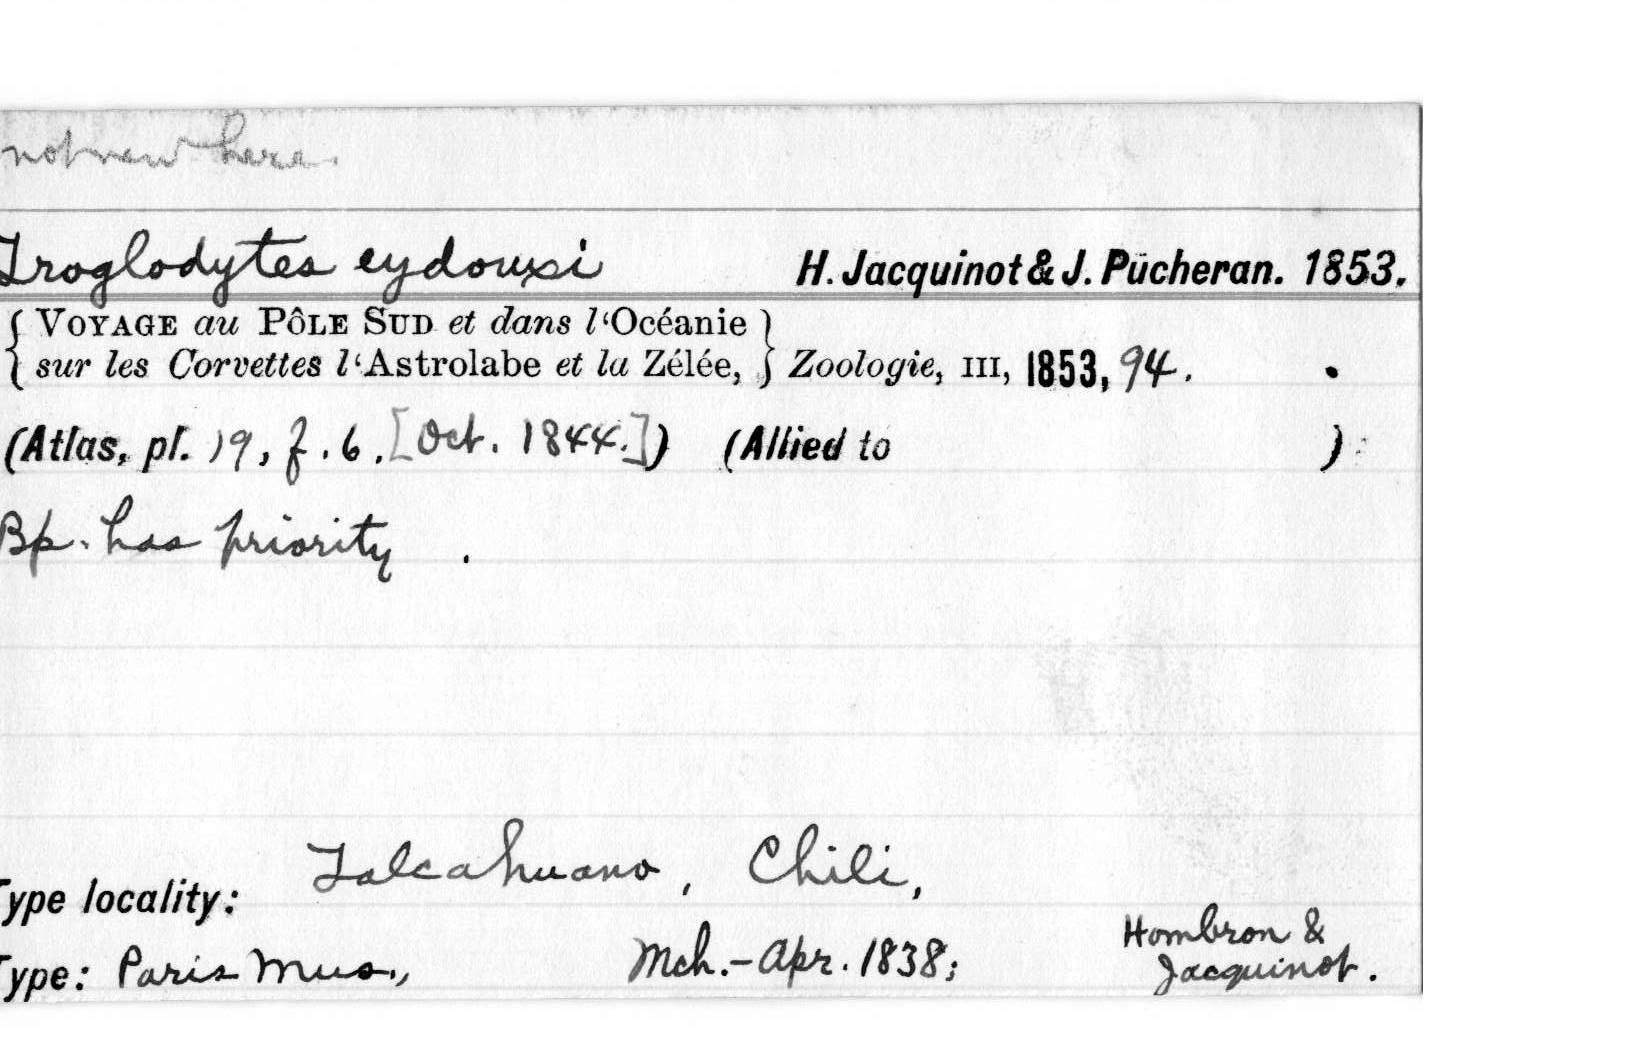 not new here.
Troglodytes eydouxi H. Jacquinot & J. Pucheran. 1853.
{ VOYAGE au PÔLE SUD et dans l'Océanie }
{ sur les Corvettes l'Astrolabe et la Zélée, } Zoologie, III, 1853, 94.
(Atlas, pl. 19, f. 6. [Oct. 1844.]) (Allied to )
Bp. has priority.
Type locality: Talcahuano, Chili,
Type: Paris Mus., Mch.-Apr. 1838; Hombron &
Jacquinot.